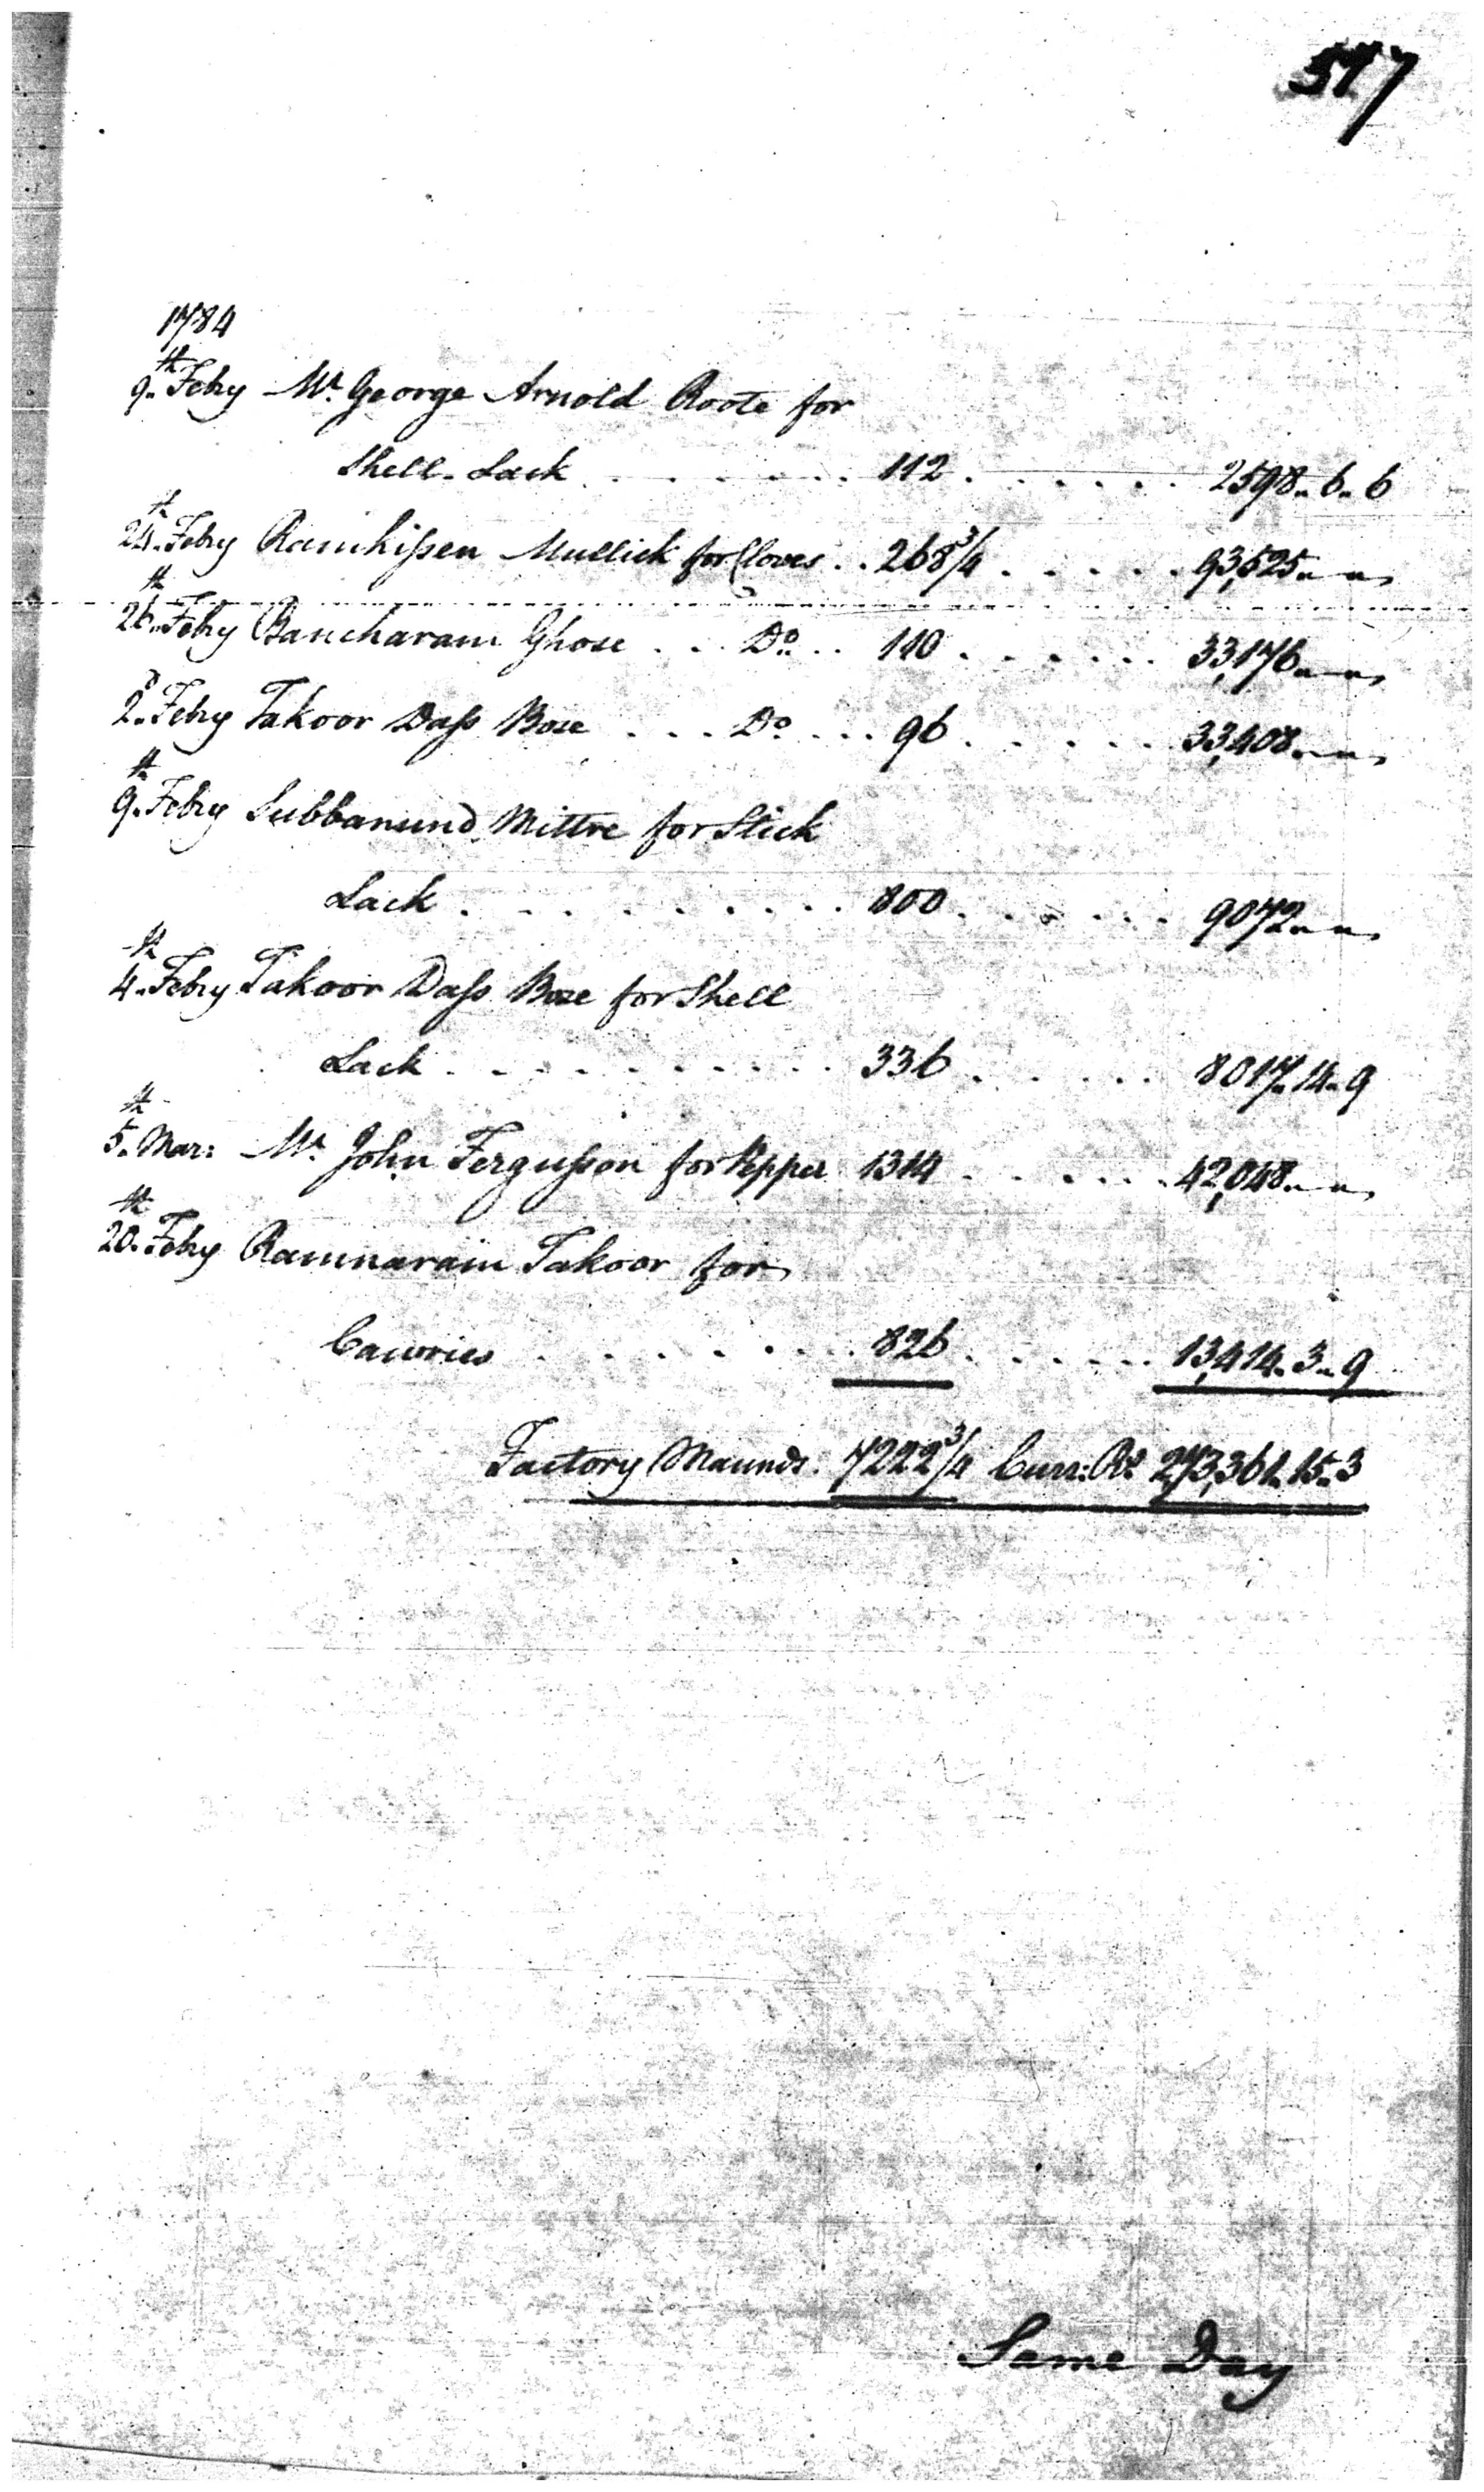 517
1784
9th Febry Mr. George Arnold Roote for
Shell Lack . . . . . . . 112 . . . . . . 2598" 6" 6
24th Febry Ramkissen Mullick for Cloves . . 268 3/4 . . . . . 93,525" "
26th Febry Bancharam Ghose . . . Do . . 110 . . . . . . 33,176" "
2d Febry Takoor Dass Bose . . . Do . . . 96 . . . . . 33,408" "
9th Febry Subbanund Mittre for Stick
Lack . . . . . . . . . . 800 . . . . . . 9072" "
4th Febry Takoor Dass Bose for Shell
Lack . . . . . . . . . . 336 . . . . . 8017" 14" 9
5th Mar: Mr. John Fergusson for Pepper 1314 . . . . . 42,048" "
20th Febry Ramnarain Takoor for
Cauries . . . . . . . . 826 . . . . . . 13,414" 3" 9
Factory Maunds. 7222 3/4 Curr: Rs 273,361" 15" 3
Same Day